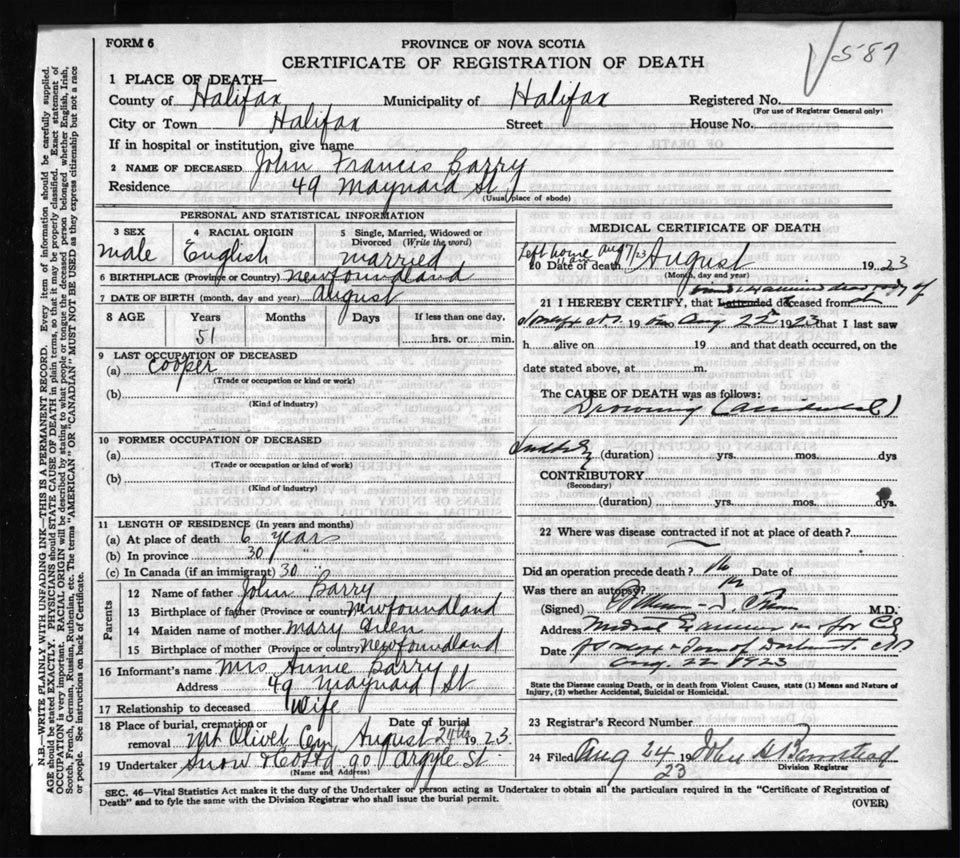 FORM 6
PROVINCE OF NOVA SCOTIA
CERTIFICATE OF REGISTRATION OF DEATH
1 PLACE OF DEATH—
County of Halifax Municipality of Halifax Registered No.
(For use of Registrar General only)
City or Town Halifax Street House No.
If in hospital or institution, give name
2 NAME OF DECEASED John Francis Barry
Residence 49 Maynard St
(Usual place of abode)
PERSONAL AND STATISTICAL INFORMATION
3 SEX
male
4 RACIAL ORIGIN
English
5 Single, Married, Widowed or
Divorced (Write the word)
married
6 BIRTHPLACE (Province or Country) Newfoundland
7 DATE OF BIRTH (month, day and year) August
8 AGE Years Months Days If less than one day,
51 hrs. or min.
9 LAST OCCUPATION OF DECEASED
(a) Cooper
(Trade or occupation or kind or work)
(b)
(Kind of industry)
10 FORMER OCCUPATION OF DECEASED
(a)
(Trade or occupation or kind or work)
(b)
(Kind of industry)
11 LENGTH OF RESIDENCE (In years and months)
(a) At place of death 6 years
(b) In province 30 "
(c) In Canada (if an immigrant) 30 "
Parents
12 Name of father John Barry
13 Birthplace of father (Province or country) Newfoundland
14 Maiden name of mother Mary
15 Birthplace of mother (Province or country) Newfoundland
16 Informant's name Mrs Annie Barry
Address 49 Maynard St
17 Relationship to deceased Wife
18 Place of burial, cremation or Date of burial
removal Mt Olivet Cem, August 24th 1923.
19 Undertaker Snow & Co Ltd 90 Argyle St
(Name and Address)
MEDICAL CERTIFICATE OF DEATH
Left home Aug 17/23
20 Date of death August 1923
(Month, day and year)
21 I HEREBY CERTIFY, that I attended deceased from
19 to Aug 22nd 1923 that I last saw
h alive on 19 and that death occurred, on the
date stated above, at m.
The CAUSE OF DEATH was as follows:
Drowning (accidental)
(duration) yrs. mos. dys
CONTRIBUTORY
(Secondary)
(duration) yrs. mos. dys.
22 Where was disease contracted if not at place of death?
Did an operation precede death? No Date of
Was there an autopsy? No
(Signed) M.D.
Address Medical Examiner for City
Date of
Aug. 22 1923
State the Disease causing Death, or in death from Violent Causes, state (1) Means and Nature of
Injury, (2) whether Accidental, Suicidal or Homicidal.
23 Registrar's Record Number
24 Filed Aug 24/23 19 John
Division Registrar
SEC. 46—Vital Statistics Act makes it the duty of the Undertaker or person acting as Undertaker to obtain all the particulars required in the "Certificate of Registration of
Death" and to fyle the same with the Division Registrar who shall issue the burial permit.
(OVER)
N.B.—WRITE PLAINLY WITH UNFADING INK—THIS IS A PERMANENT RECORD. Every item of information should be carefully supplied.
AGE should be stated EXACTLY. PHYSICIANS should STATE CAUSE OF DEATH in plain terms, so that it may be properly classified. Exact statement of
OCCUPATION is very important. RACIAL ORIGIN will be described by stating to what people or tongue the deceased person belonged whether English, Irish,
Scotch, French, German, Russian, Ruthenian, etc. The terms "AMERICAN" OR "CANADIAN" MUST NOT BE USED as they express citizenship but not a race
or people. See instructions on back of Certificate.